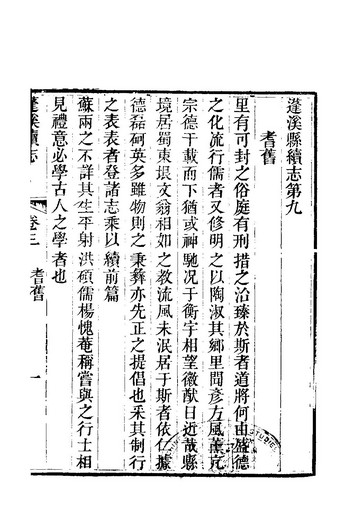 蓬溪縣續志第九
耆舊
里有可封之俗庭有刑措之治臻於斯者道將何由盛德
之化流行儒者又修明之以陶淑其鄉里間彥方風薰元
宗德干載而下猶或神馳况于衡宇相望徽猷日近哉縣
境居蜀東垠文翁相如之教流風未泯居于斯者依仁據
德磊砢英多雖物則之秉彝亦先正之提倡也釆其制行
之表表者登諸志乘以續前篇
蘇兩之不詳其生平射洪碩儒楊愧菴稱嘗與之行士相
見禮意必學古人之學者也
蓬溪續志
卷三
耆舊
一